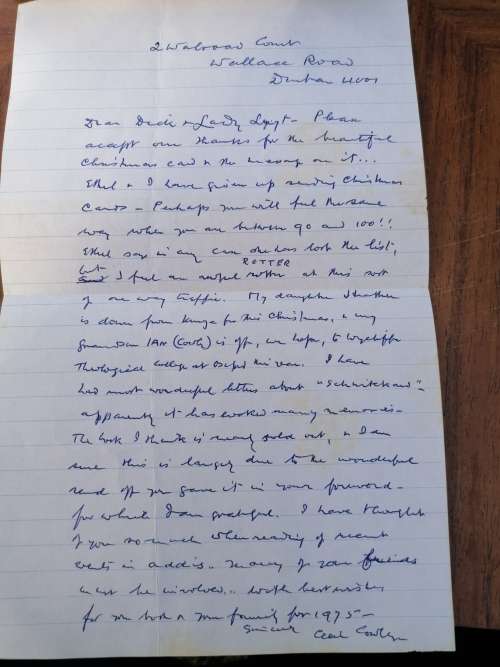 2 Walsaad Court
Wallace Road
Durban 4001
Dear Dick & Lady - Please
accept our thanks for the beautiful
Christmas card & the message on it...
Ethel & I have given up sending Christmas
Cards - Perhaps you will feel the same
way when you are between 90 and 100!!
Ethel says in any case she has lost the list,
ROTTER
but I feel an awful rotter at this sort
of one way traffic. My daughter Heather
is down from Kenya for this Christmas, & my
grandson IAN (Cowley) is off, we hope, to Wycliffe
Theological College at Oxford this year. I have
had most wonderful letters about "Schwikkard" -
apparently it has evoked many memories -
The book I think is nearly sold out, & I am
sure this is largely due to the wonderful
send off you gave it in your foreword -
for which I am grateful. I have thought
of you so much when reading of recent
events in Addis.. many of your friends
must be involved.. with best wishes
for you both & your family for 1975 -
Sincerely Cecil Cowley